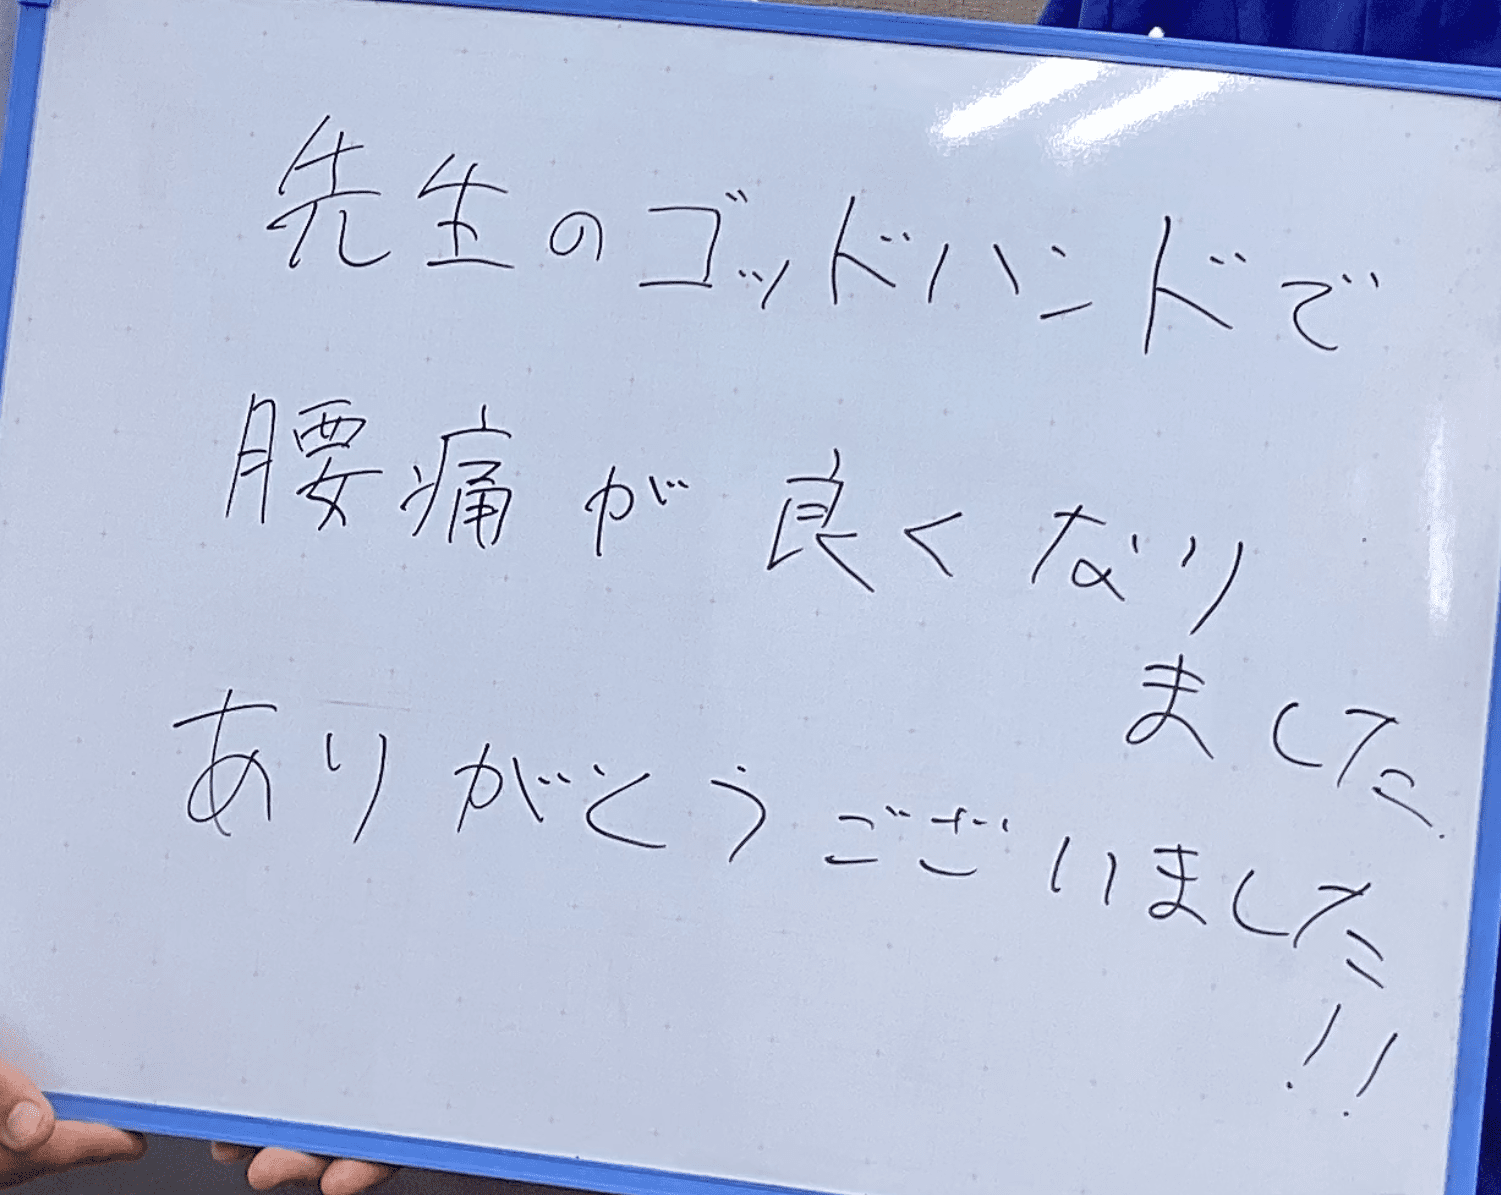 先生のゴッドハンドで
腰痛が良くなり
ました.
ありがとうございました
!!